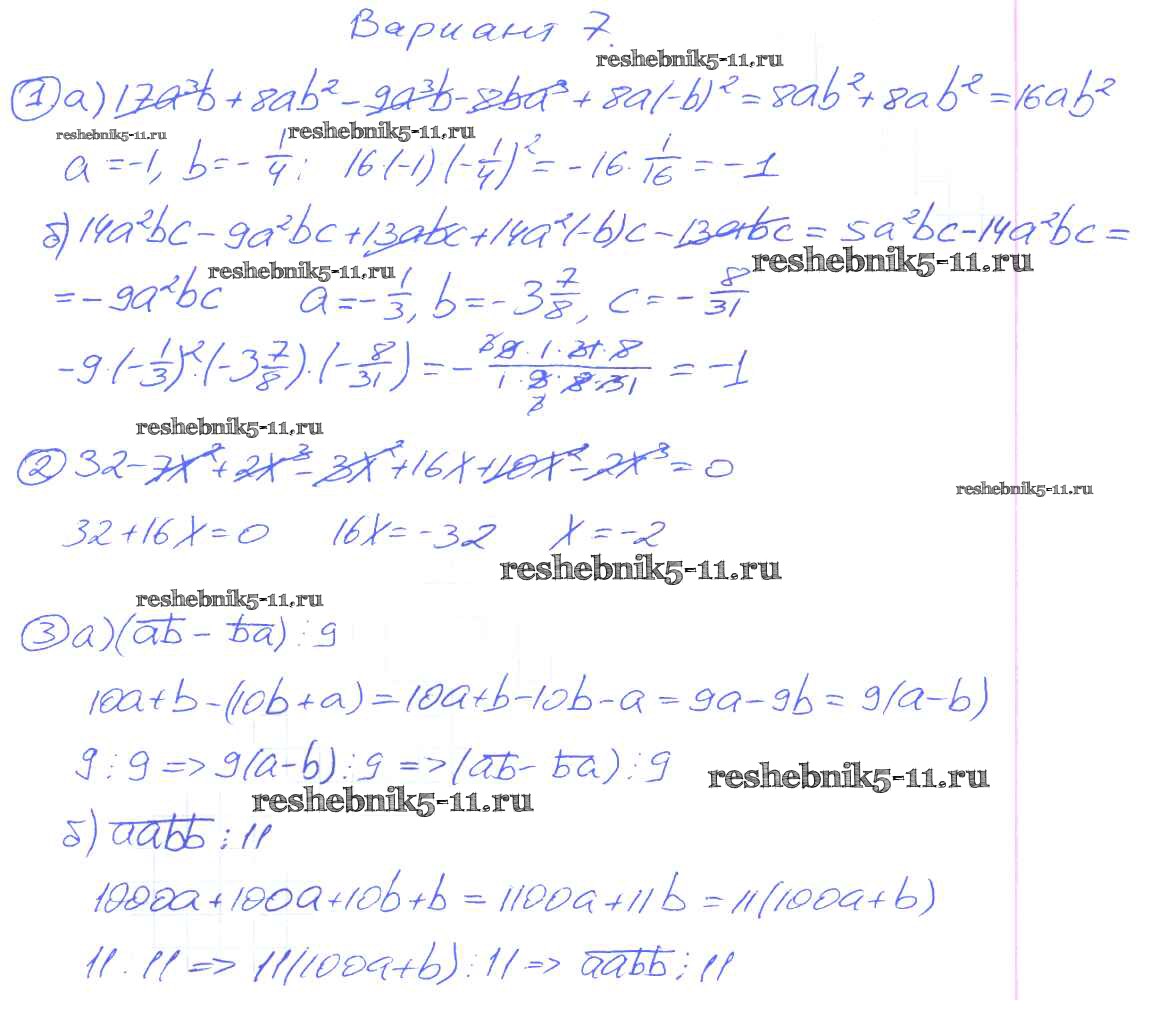 Вариант 7.
reshebnik5-11.ru
① а) 17a³b + 8ab² - 9a³b - 8ba³ + 8a(-b)² = 8ab² + 8ab² = 16ab²
reshebnik5-11.ru reshebnik5-11.ru
a = -1, b = - 1/4; 16·(-1)(-1/4)² = -16 · 1/16 = -1
б) 14a²bc - 9a²bc + 13abc + 14a²(-b)c - 13abc = 5a²bc - 14a²bc =
reshebnik5-11.ru reshebnik5-11.ru
= -9a²bc a = -1/3, b = -3 7/8, c = - 8/31
-9·(-1/3)²·(-3 7/8)·(-8/31) = - 9·1·31·8 / 1·9·8·31 = -1
reshebnik5-11.ru
② 32 - 7x² + 2x³ - 3x² + 16x + 10x² - 2x³ = 0
reshebnik5-11.ru
32 + 16x = 0 16x = -32 x = -2
reshebnik5-11.ru
reshebnik5-11.ru
③ а) (ab - ba) ⋮ 9
10a + b - (10b + a) = 10a + b - 10b - a = 9a - 9b = 9(a - b)
9 ⋮ 9 => 9(a - b) ⋮ 9 => (ab - ba) ⋮ 9
reshebnik5-11.ru
reshebnik5-11.ru
б) aabb ⋮ 11
1000a + 100a + 10b + b = 1100a + 11b = 11(100a + b)
11 ⋮ 11 => 11(100a + b) ⋮ 11 => aabb ⋮ 11